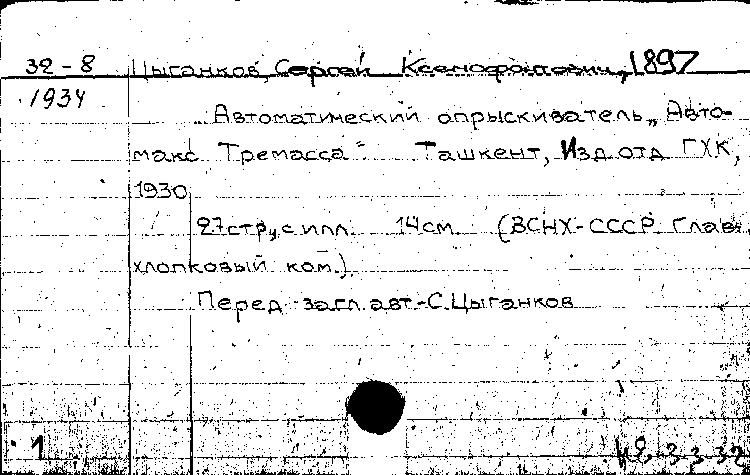 32-8 Цыганков, Сергей Ксенофонтович, 1897
1934
Автоматический опрыскиватель „Авто-
макс Тремасса" Ташкент, Изд. отд ГХК,
1930
27 стр., с илл. 14 см. (ВСНХ-СССР. Глав.
хлопковый ком.)
Перед загл. авт.-С. Цыганков
1